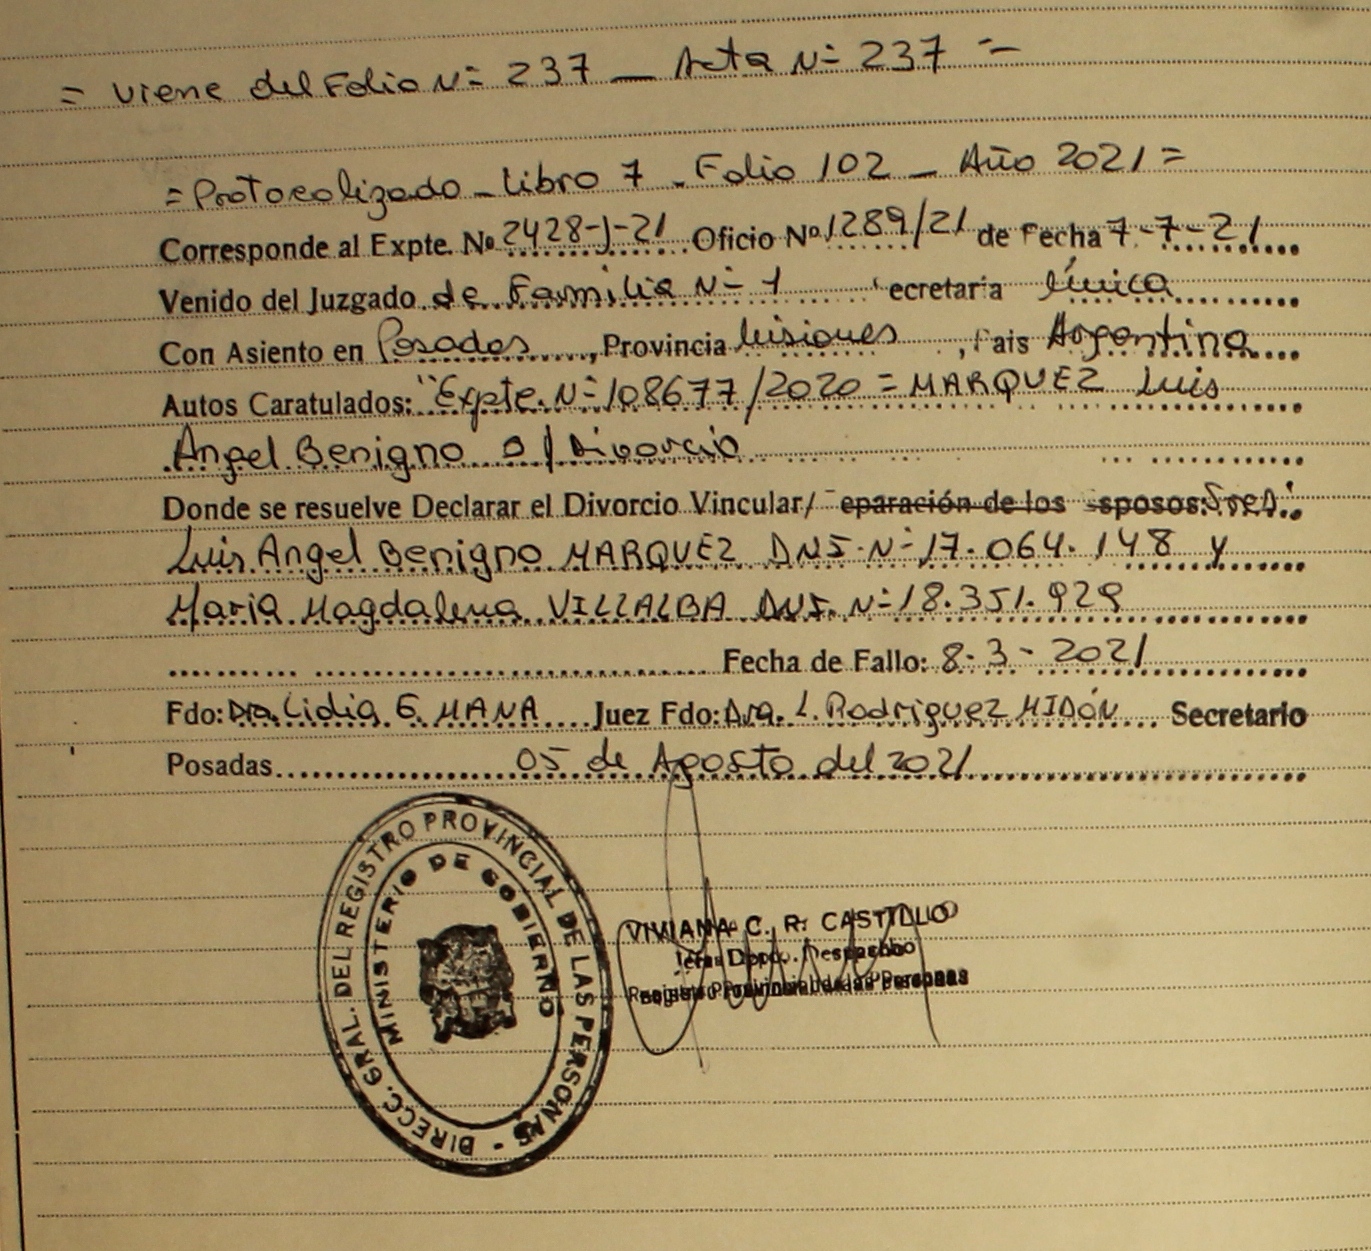 = Viene del Folio Nº 237 — Acta Nº 237 =
= Protocolizado - Libro 7 - Folio 102 - Año 2021 =
Corresponde al Expte. Nº 2428-J-21 Oficio Nº 1289/21 de Fecha 7-7-21
Venido del Juzgado de Familia Nº 1 ecretaria Única
Con Asiento en Posadas, Provincia Misiones, Pais Argentina
Autos Caratulados: "Expte. Nº 108677/2020 = MARQUEZ Luis
Angel Benigno S/ Divorcio
Donde se resuelve Declarar el Divorcio Vincular/ eparación de los sposos: Sres.:
Luis Angel Benigno MARQUEZ DNI. Nº 17.064.148 y
Maria Magdalena VILLALBA DNI. Nº 18.351.929
Fecha de Fallo: 8-3-2021
Fdo: Dra. Lidia E. MANA Juez Fdo: Dra. L. Rodriguez MIDÓN Secretario
Posadas 05 de Agosto del 2021
DIRECC. GRAL. DEL REGISTRO PROVINCIAL DE LAS PERSONAS -
MINISTERIO DE GOBIERNO
VIVIANA C. R. CASTILLO
Dpto. Despacho
Registro Provincial de las Personas